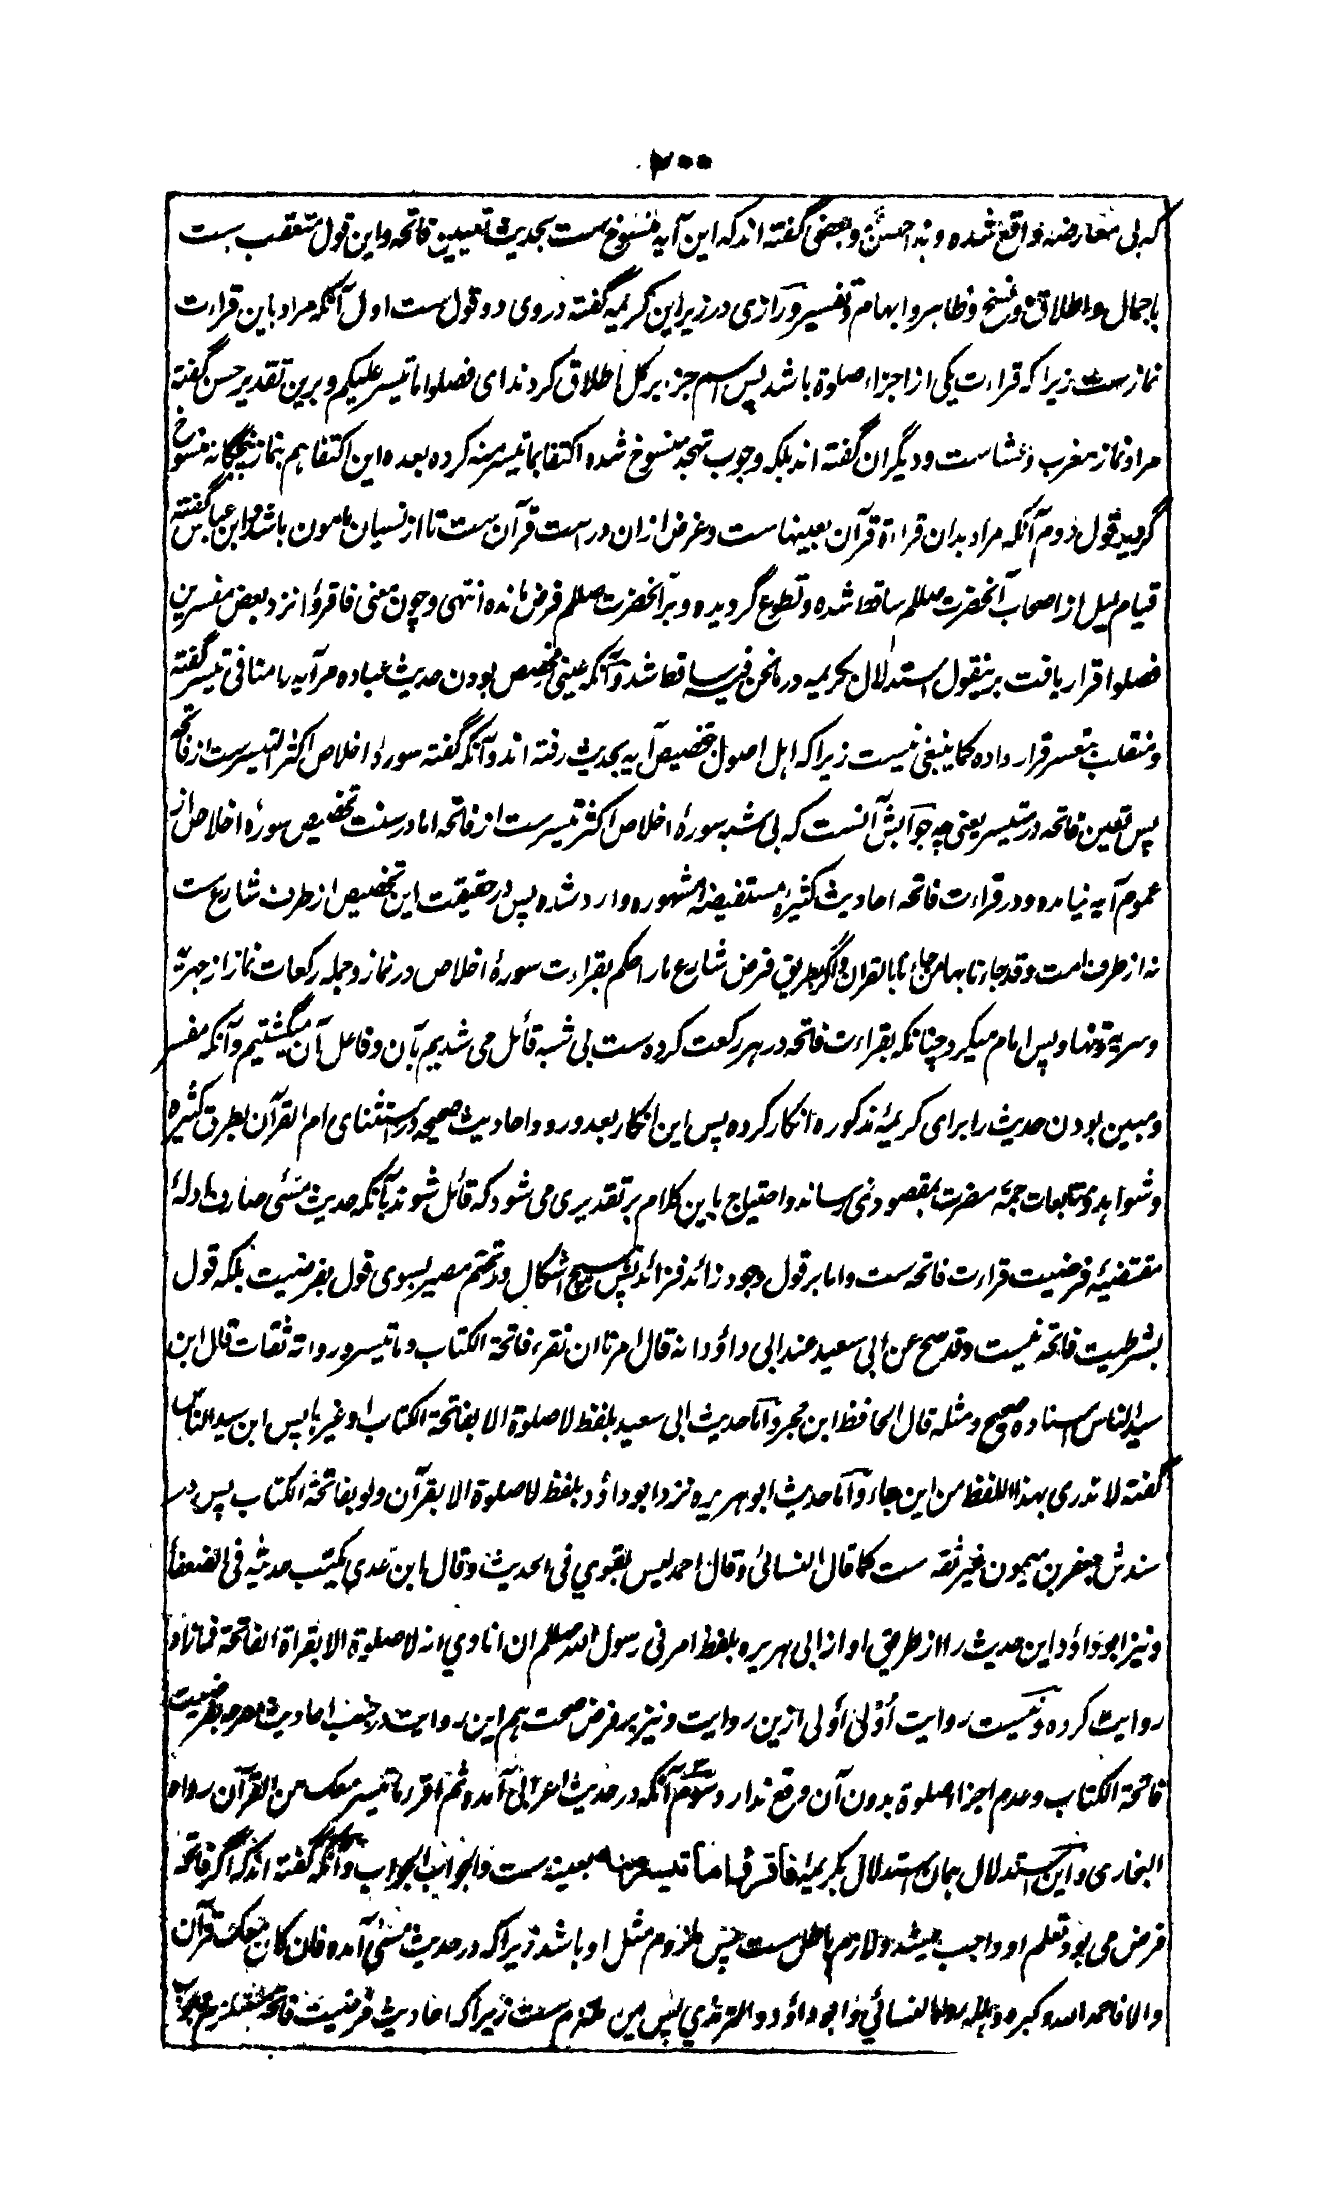 ۲۰۰
که بی معارضه واقع شده و نه احسن و بعضی گفته اند که این آیه منسوخ ست بحدیث تعیین فاتحه و این قول متعقب ست
باجمال و اطلاق و نسخ و ظاهر و ابهام و تفسیر و رازی در زیر این کریمه گفته در وی دو قول ست اول آنکه مراد باین قراءت
نمازست زیرا که قراءت یکی از اجزاء صلوة باشد پس اسم جزء بر کل اطلاق کردند ای فصلوا ما تیسر علیکم و برین تقدیر حسن گفته
مراد نماز مغرب و عشاست و دیگران گفته اند بلکه وجوب تهجد منسوخ شده اکتفا بما تیسر منه کرده بعده این اکتفا هم بنماز پنجگانه منسوخ
گردید قول دوم آنکه مراد بدان قراءة قرآن بعینهاست و غرض ازان دراست قرآن ست تا از نسیان مامون باشد و ابن عباس گفته
قیام لیل از اصحاب آنحضرت صللم ساقط شده و تطوع گردیده و بر آنحضرت صللم فرض مانده انتهی و چون معنی فاقرؤا نزد بعض مفسرین
فصلوا قرار یافت برینقول استدلال بکریمه در ما نحن فیه ساقط شد و آنکه عینی مخصص بودن حدیث عباده مر آیه را منافی تیسر گفته
و منقلب بتعسر قرار داده کما ینبغی نیست زیرا که اهل اصول بتخصیص آیه بحدیث رفته اند و آنکه گفته سورۀ اخلاص اکثر التیسرست از فاتحه
پس تعین فاتحه در تیسر یعنی چه جوابش آنست که بی شبه سورۀ اخلاص اکثر تیسرست از فاتحه اما در سنت تخصیص سورۀ اخلاص از
عموم آیه نیامده و در قراءت فاتحه احادیث کثیرۀ مستفیضه مشهوره وارد شده پس در حقیقت این تخصیص از طرف شارع ست
نه از طرف امت و قد جاءنا بهما من جاءنا بالقران و اگر بطریق فرض شارع ما را حکم بقراءت سورۀ اخلاص در نماز و جمله رکعات نماز از جهریه
و سریه و تنها و پس امام میکرد چنانکه بقراءت فاتحه در هر رکعت کرده ست بی شبه قائل می شدیم بآن و فاعل آن میگشتیم و آنکه مفسر
و مبین بودن حدیث را برای کریمۀ مذکوره انکار کرده پس این انکار بعد ورود احادیث صحیحه در استثنای ام القرآن بطرق کثیره
و شواهد و متابعات جمه مضرت بمقصود نمی رساند و احتیاج باین کلام بر تقدیری می شود که قائل شوند بآنکه حدیث مسئی صارف ادلۀ
مقتضیۀ فرضیت قراءت فاتحه ست و اما بر قول وجود زائد فزائد پس هیچ اشکال در تحتم مصیر بسوی قول بفرضیت بلکه قول
بشرطیت فاتحه نیست و قد صح عن أبی سعید عند ابی داؤد انه قال امرنا ان نقرء فاتحة الکتاب و ما تیسر و رواته ثقات قال ابن
سید الناس اسناده صحیح و مثله قال الحافظ ابن حجر و اما حدیث ابی سعید بلفظ لا صلوة الا بفاتحة الکتاب او غیرها پس ابن سید الناس
گفته لا ندری بهذا اللفظ من این جاء و اما حدیث ابو هریره نزد ابو داؤد بلفظ لا صلوة الا بقرآن و لو بفاتحة الکتاب پس در
سندش جعفر بن میمون غیر ثقه ست کما قال النسائی و قال احمد لیس بقوي فی الحدیث و قال ابن عدی یکتب حدیثه فی الضعفاء
و نیز ابو داؤد این حدیث را از طریق او از ابی هریره بلفظ امرنی رسول الله صللم ان انادي انه لا صلوة الا بقراة الفاتحة فما زاد
روایت کرده و نیست روایت أولی اولی ازین روایت و نیز بر فرض صحت هم این روایت در جنب احادیث مصرحه بفرضیت
فاتحة الکتاب و عدم اجزاء صلوة بدون آن موقع ندارد سوم آنکه در حدیث اعرابی آمده ثم اقرء ما تیسر معک من القرآن رواه
البخاری و این استدلال بهمان استدلال بکریمۀ فاقرؤا ما تیسر منه بعینه ست و الجواب الجواب و آنکه گفته اند که اگر فاتحه
فرض می بود تعلم او واجب میشد و لازم باطل ست پس ملزوم مثل او باشد زیرا که در حدیث مسئی آمده فان کان معک قرآن
والا فاحمد الله و کبره و هلله رواه النسائي و ابو داؤد و الترمذي پس این ملتزم ست زیرا که احادیث فرضیت فاتحه